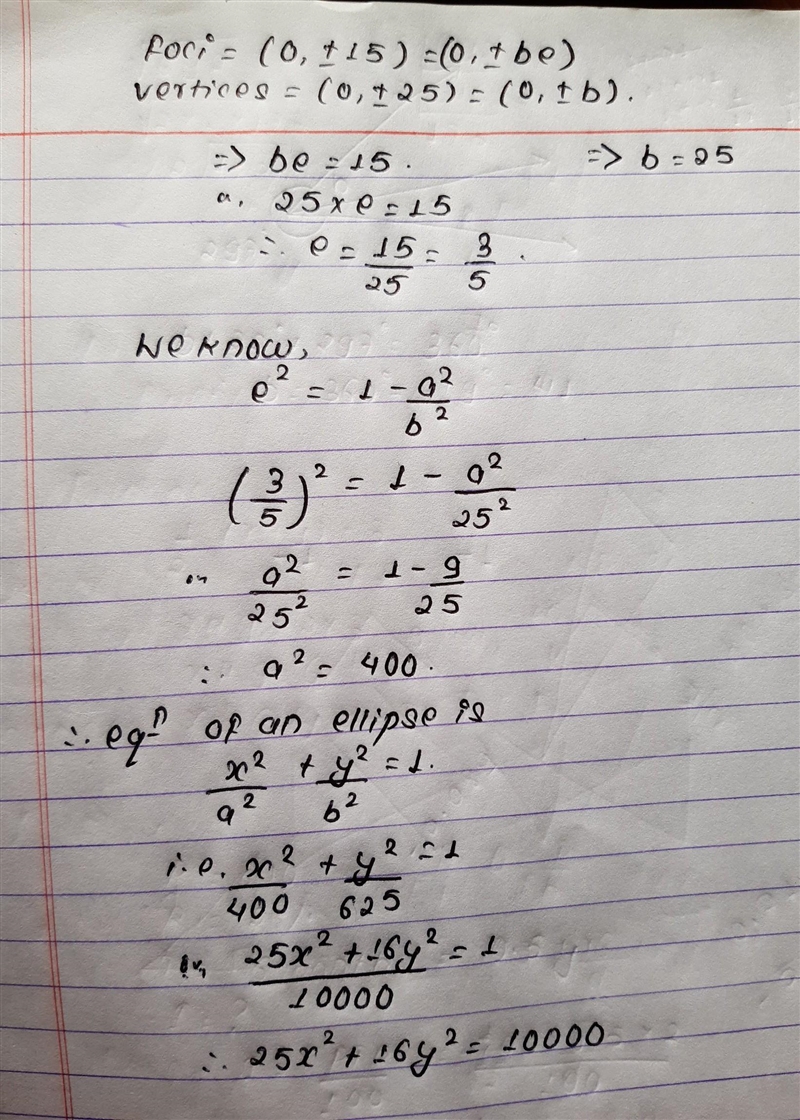 foci = (0, ±15) = (0, ±be)
vertices = (0, ±25) = (0, ±b).
=> be = 15. => b = 25
or, 25 × e = 15
∴ e = 15/25 = 3/5.
We know,
e² = 1 - a²/b²
(3/5)² = 1 - a²/25²
or, a²/25² = 1 - 9/25
∴ a² = 400.
∴ eqⁿ of an ellipse is
x²/a² + y²/b² = 1.
i.e. x²/400 + y²/625 = 1
or, (25x² + 16y²)/10000 = 1
∴ 25x² + 16y² = 10000